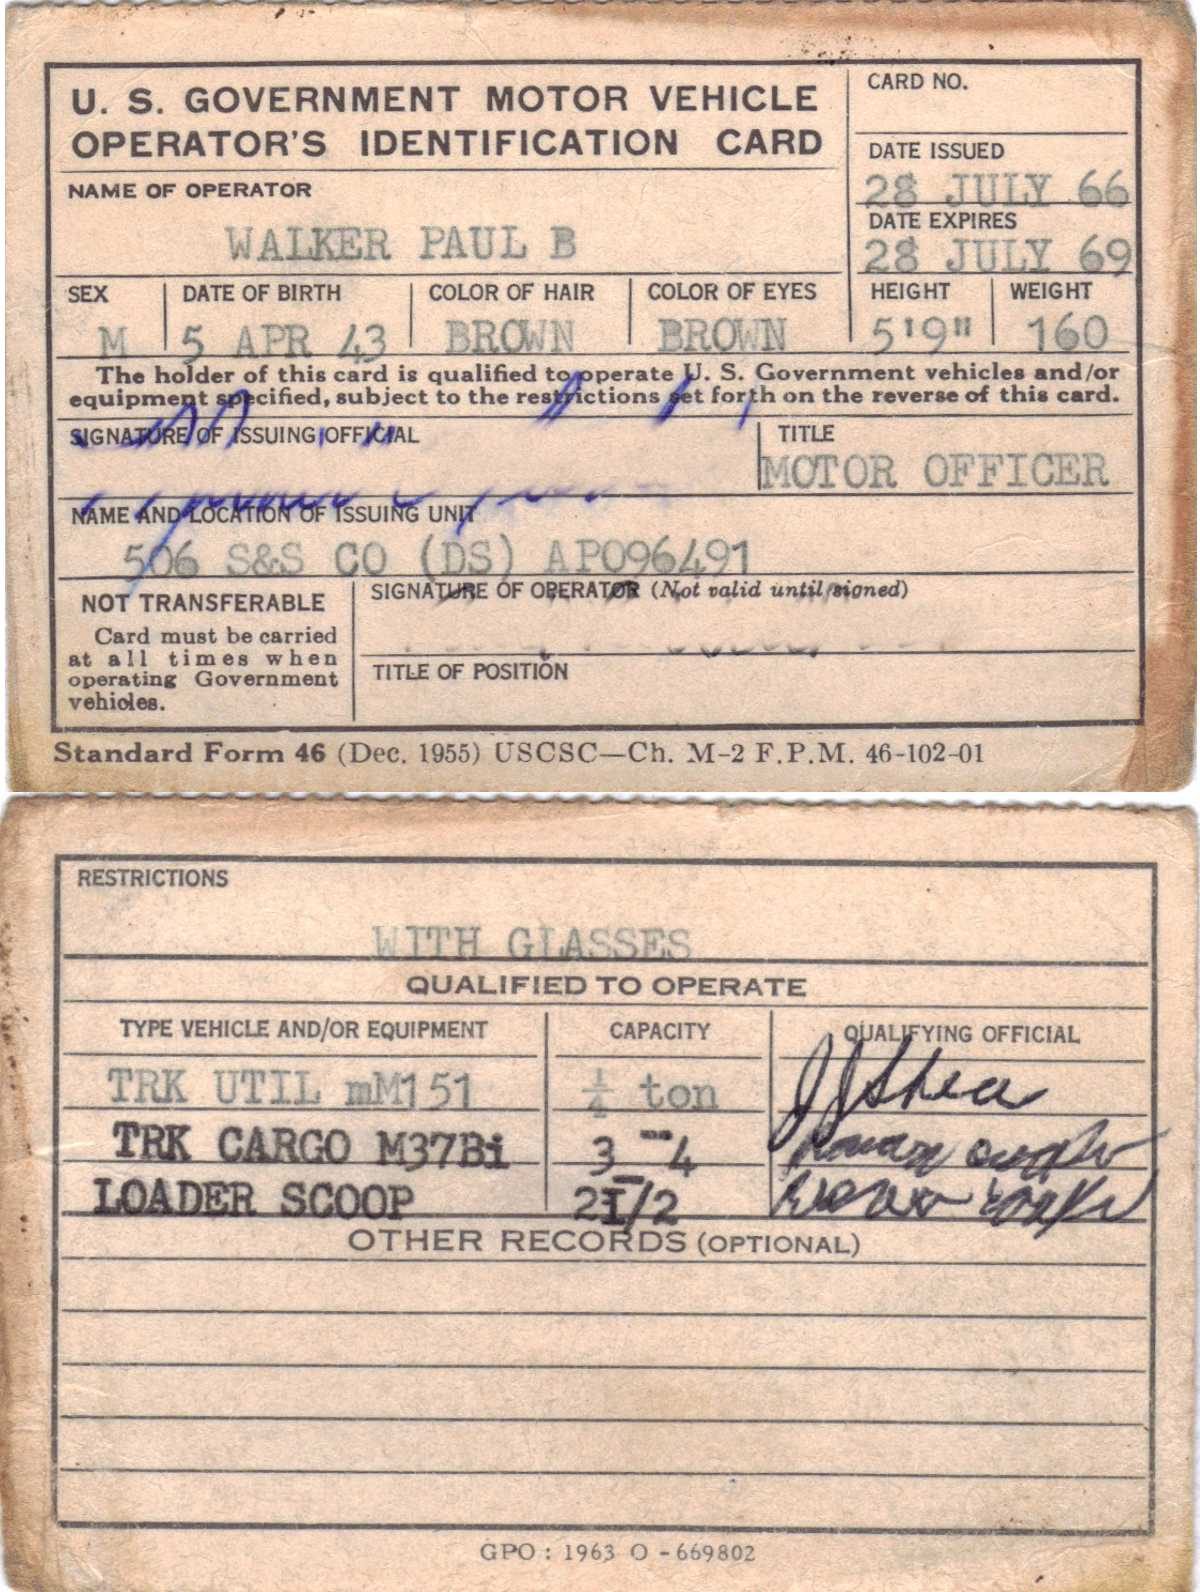 U. S. GOVERNMENT MOTOR VEHICLE
OPERATOR'S IDENTIFICATION CARD
CARD NO.
DATE ISSUED
28 JULY 66
DATE EXPIRES
28 JULY 69
NAME OF OPERATOR
WALKER PAUL B
SEX DATE OF BIRTH COLOR OF HAIR COLOR OF EYES HEIGHT WEIGHT
M 5 APR 43 BROWN BROWN 5'9" 160
The holder of this card is qualified to operate U. S. Government vehicles and/or
equipment specified, subject to the restrictions set forth on the reverse of this card.
SIGNATURE OF ISSUING OFFICIAL TITLE
MOTOR OFFICER
NAME AND LOCATION OF ISSUING UNIT
506 S&S CO (DS) APO96491
NOT TRANSFERABLE
Card must be carried
at all times when
operating Government
vehicles.
SIGNATURE OF OPERATOR (Not valid until signed)
TITLE OF POSITION
Standard Form 46 (Dec. 1955) USCSC—Ch. M-2 F.P.M. 46-102-01
RESTRICTIONS
WITH GLASSES
QUALIFIED TO OPERATE
TYPE VEHICLE AND/OR EQUIPMENT CAPACITY QUALIFYING OFFICIAL
TRK UTIL mM151 1/4 ton JJShea
TRK CARGO M37Bi 3 - 4
LOADER SCOOP 2I/2
OTHER RECORDS (OPTIONAL)
GPO : 1963 O - 669802